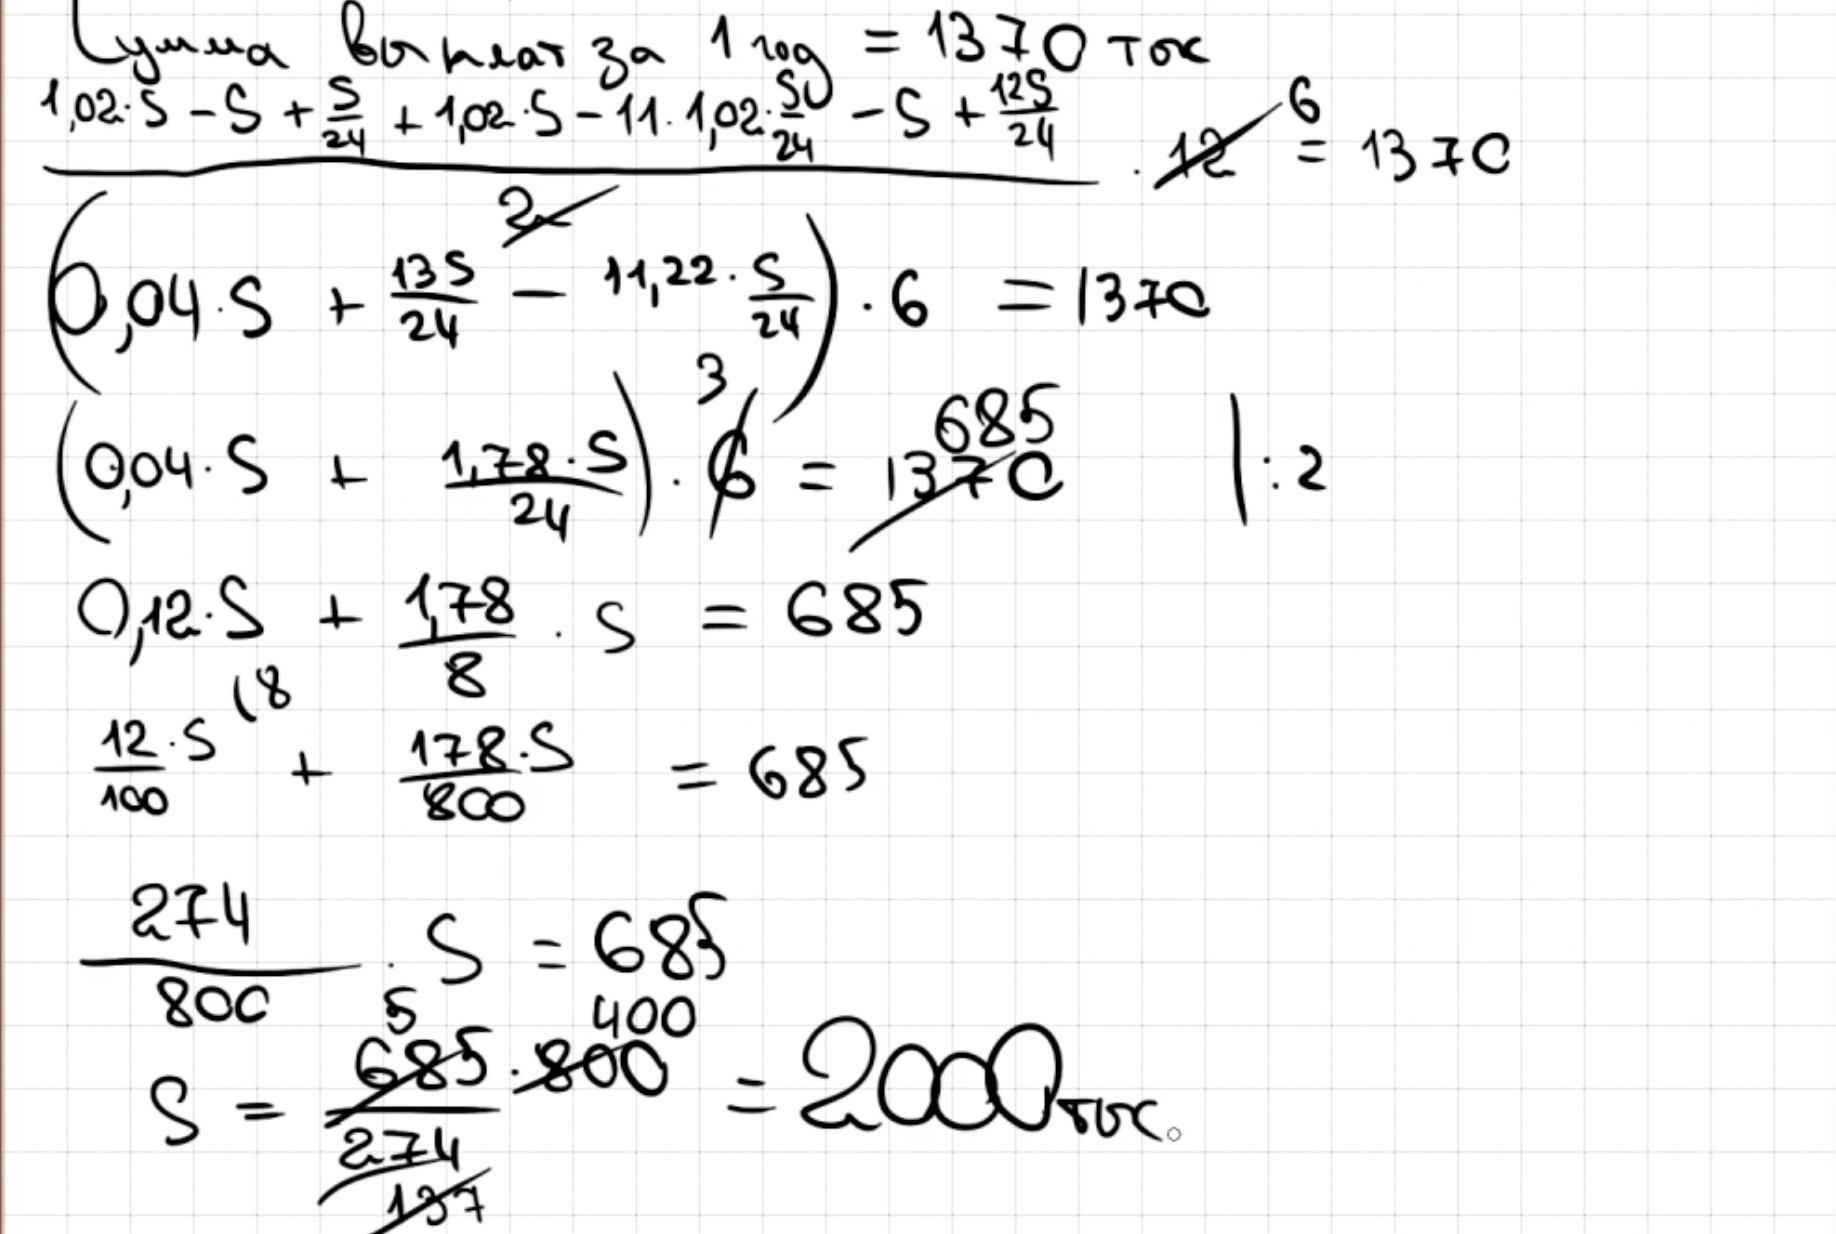 Сумма выплат за 1 год = 1370 тыс
1,02·S − S + S/24 + 1,02·S − 11·1,02·S/24 − S + 12S/24
/ 2 · 12 6 = 1370
(0,04·S + 13S/24 − 11,22·S/24)·6 = 1370
(0,04·S + 1,78·S/24)·6 3 = 1370 685 |:2
0,12·S + 1,78/8 · S = 685
12/100·S (8 + 178·S/800 = 685
274/800 · S = 685
S = 685 5 · 800 400 / 274 137 = 2000 тыс.